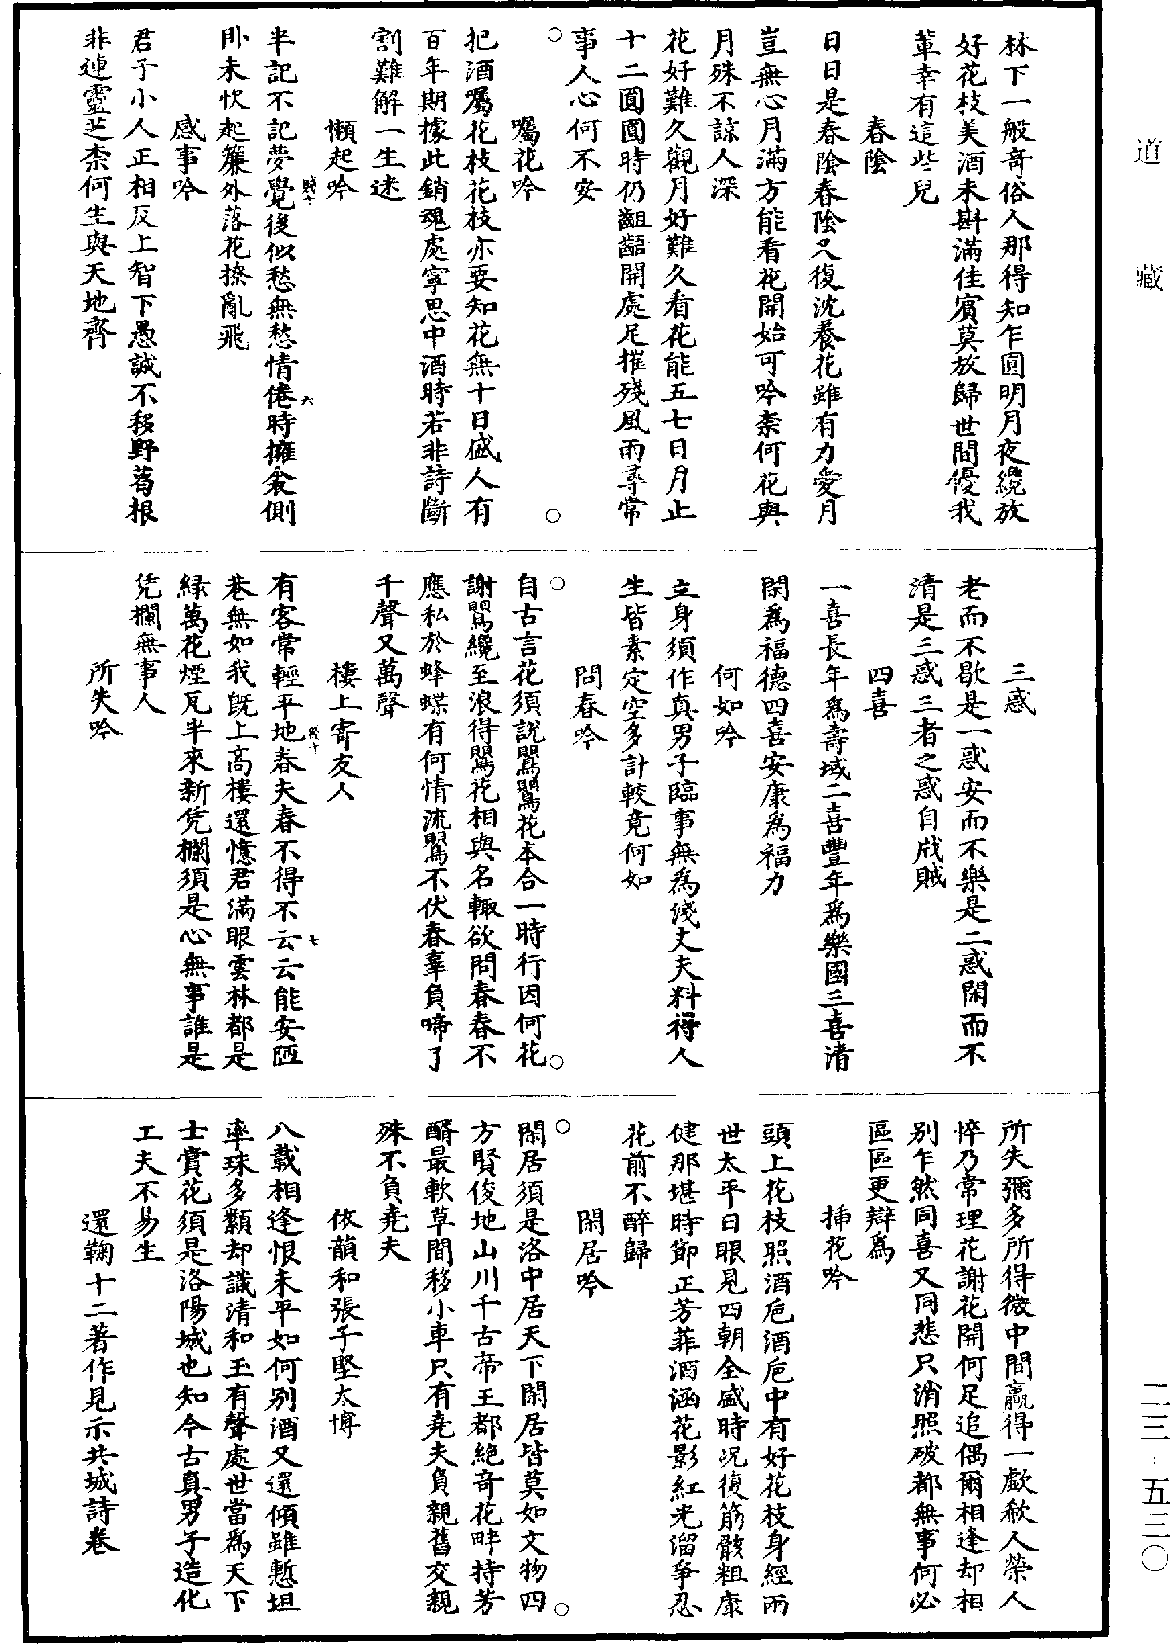 道藏
林下一般奇俗人那得知乍圓明月夜纔放
好花枝美酒未斟滿佳賓莫放歸世間優我
輩幸有這些兒
春陰
日日是春陰春陰又復沈養花雖有力愛月
豈無心月滿方能看花開始可吟柰何花與
月殊不諒人深
花好難久觀月好難久看花能五七日月止
十二圓圓時仍齟齬開處足摧殘風雨尋常
事人心何不安
囑花吟
把酒囑花枝花枝亦要知花無十日盛人有
百年期據此銷魂處寧思中酒時若非詩斷
割難解一生迷
懶起吟
半記不記夢覺後似愁無愁情倦時擁衾側
卧未忺起簾外落花撩亂飛
感事吟
君子小人正相反上智下愚誠不移野葛根
非連靈芝柰何生與天地齊
三惑
老而不歇是一惑安而不樂是二惑閑而不
清是三惑三者之惑自戕賊
四喜
一喜長年爲壽域二喜豐年爲樂國三喜清
閑爲福德四喜安康爲福力
何如吟
立身須作真男子臨事無爲淺丈夫料得人
生皆素定空多計較竟何如
問春吟
自古言花須說鸎鸎花本合一時行因何花
謝鸎纔至浪得鸎花相與名輙欲問春春不
應私於蜂蝶有何情流鸎不伏春辜負啼了
千聲又萬聲
樓上寄友人
有客常輕平地春夫春不得不云云能安陋
巷無如我旣上高樓還憶君滿眼雲林都是
緑萬花煙瓦半來新凭欄須是心無事誰是
凭欄無事人
所失吟
所失彌多所得微中間贏得一歔欷人榮人
悴乃常理花謝花開何足追偶爾相逢却相
別乍然同喜又同悲只消照破都無事何必
區區更辯爲
揷花吟
頭上花枝照酒巵酒巵中有好花枝身經兩
世太平日眼見四朝全盛時況復筋骸粗康
健那堪時節正芳菲酒涵花影紅光溜爭忍
花前不醉歸
閑居吟
閑居須是洛中居天下閑居皆莫如文物四
方賢俊地山川千古帝王都絶奇花畔持芳
醑最軟草間移小車只有堯夫負親舊交親
殊不負堯夫
依韻和張子堅太博
八載相逢恨未平如何別酒又還傾雖慙坦
率珠多纇却識清和玉有聲處世當爲天下
士賞花須是洛陽城也知今古真男子造化
工夫不易生
還鞠十二著作見示共城詩卷
二三·五三〇